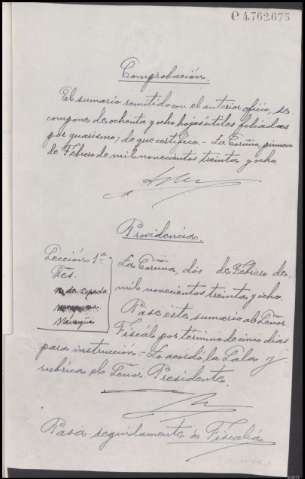 C 4.762675
Comprobación
El sumario remitido con el anterior oficio, se
compone de ochenta y ocho hojas útiles foliadas
por guarismo; de que certifico.- La Coruña, primero
de Febrero de mil novecientos treinta y ocho
Providencia.
Sección 1ª
Sres.
La Coruña, dos de Febrero de
mil novecientos treinta y ocho.
Pase este sumario al Señor
Fiscal por termino de cinco dias
para instrucción. Lo acordó la Sala y
rubrica el Señor Presidente.
Pasa seguidamente a Fiscalía